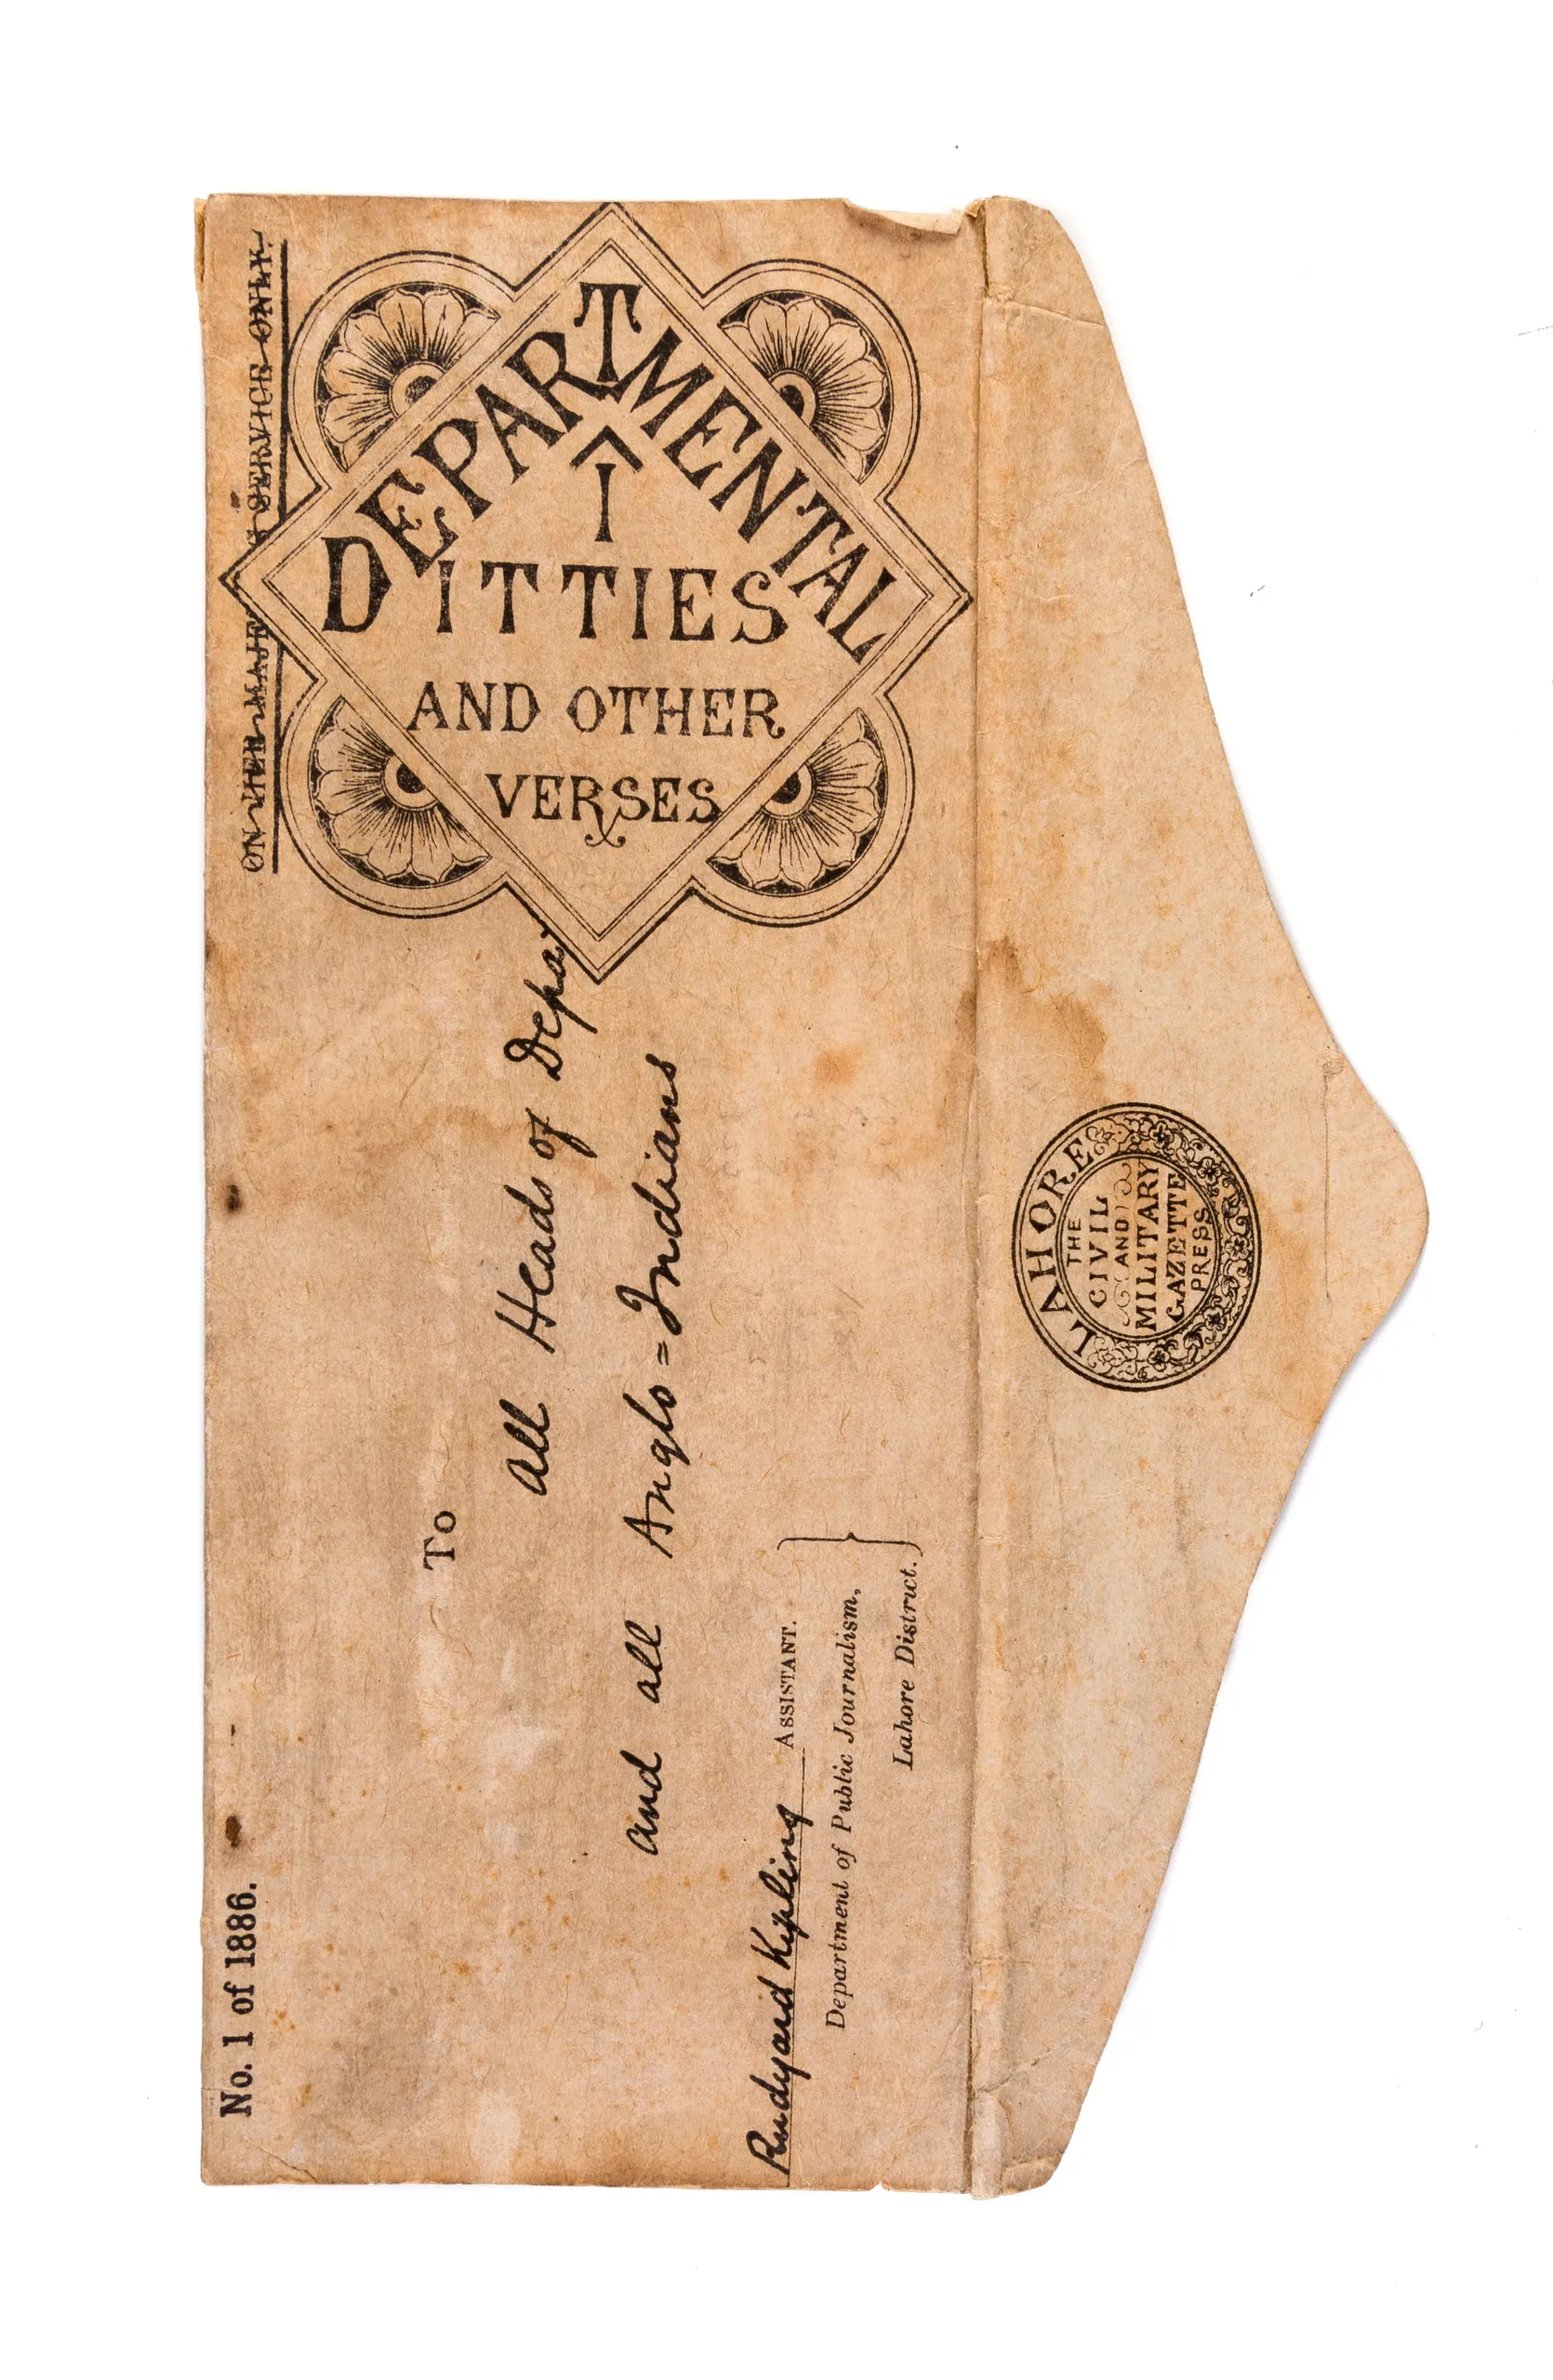 ON HER MAJE S SERVICE ONLY.
DEPARTMENTAL
I
DITTIES
AND OTHER
VERSES
No. 1 of 1886.
To
All Heads of Depar
and all Anglo=Indians
Rudyard Kipling ASSISTANT.
Department of Public Journalism,
Lahore District.
LAHORE
THE
CIVIL
AND
MILITARY
GAZETTE
PRESS